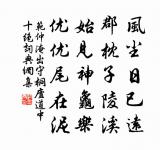 風塵日已遠
郡枕子陵溪
始見神龜樂
优优尾在泥
范仲淹出守桐廬道中
十絕詞典網集